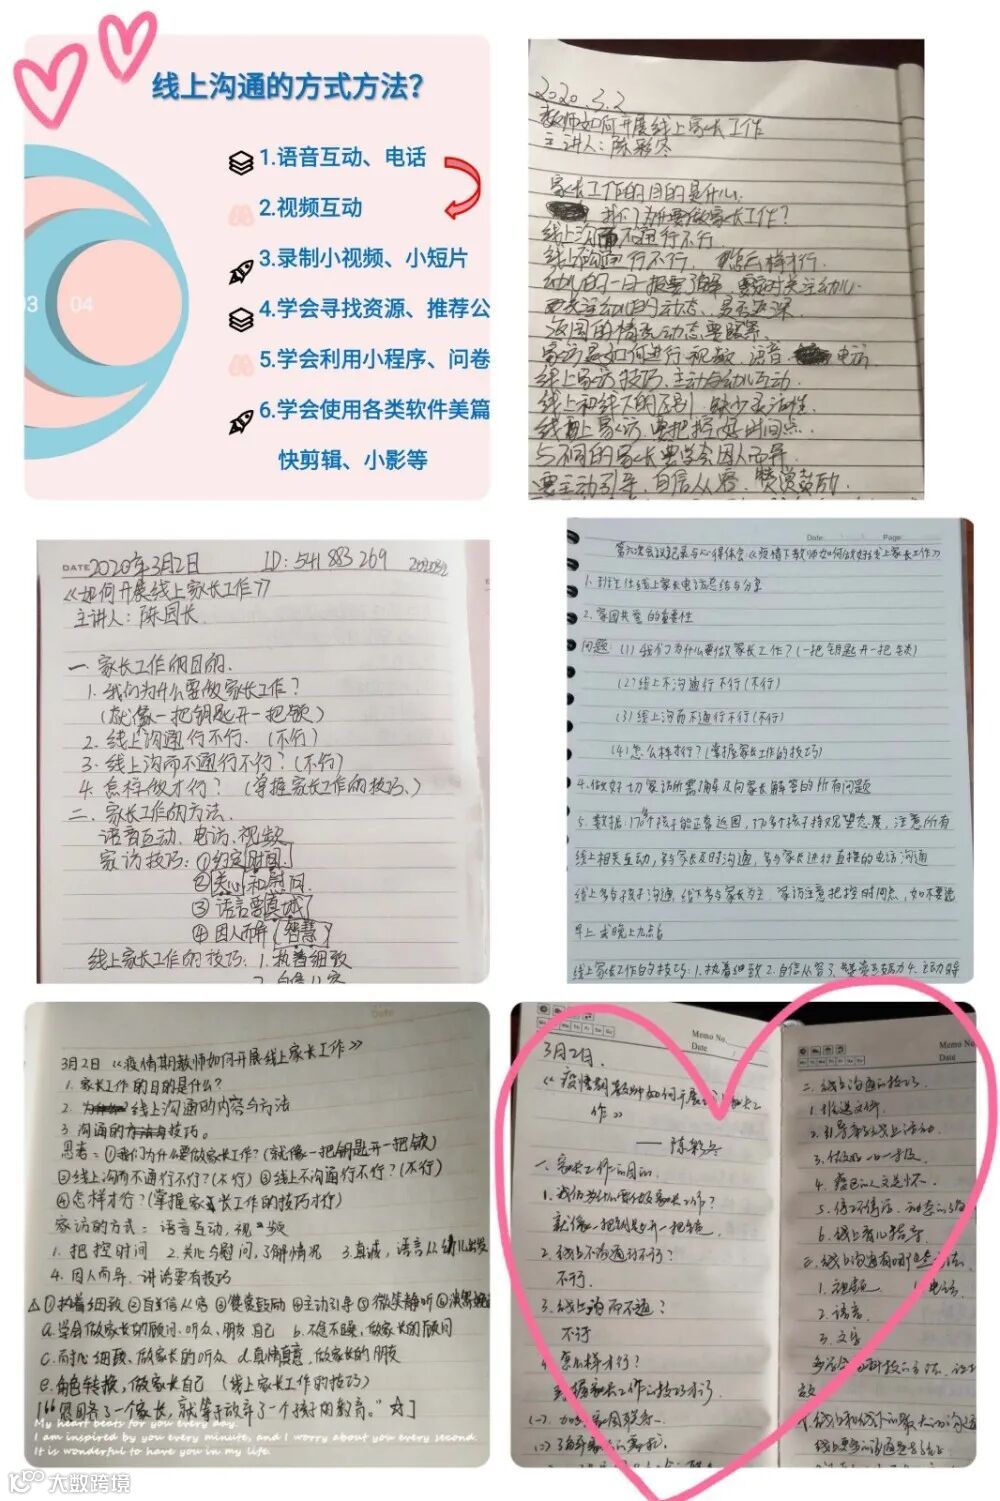 线上沟通的方式方法？
1.语音互动、电话
2.视频互动
3.录制小视频、小短片
4.学会寻找资源、推荐公
5.学会利用小程序、问卷
6.学会使用各类软件美篇
快剪辑、小影等
03 04
2020.3.2
教师如何开展线上家长工作
主讲人：陈彩冬
家长工作的目的是什么
我们为什要做家长工作？
线上沟而不通行不行
线上沟通行不行.
幼儿的一日
要关注幼儿的动态、是否返深
返园的情况动态要联系
家访是如何进行 视频 语音 电访
线上家访技巧.主动与幼儿互动.
线上和线下的区别 缺少灵活性.
线上家访.要把握好时间点.
与不同的家长要学会因人而异.
要主动引导.自信从容.赞赏鼓励.
DATE 2020年3月2日 ID：541 883 269
《如何开展线上家长工作》
主讲人：陈园长
一.家长工作的目的.
1.我们为什么要做家长工作？
（就像一把钥匙开一把锁）
2.线上沟通行不行.（不行）
3.线上沟而不通行不行？（不行）
4.怎样做才行？（掌握家长工作的技巧、）
二、家长工作的方法.
语音互动、电访、视频
家访技巧：①约定时间.
②关心和慰问.
③语言要真诚
④因人而异（智慧）
线上家长工作的技巧：1.执着细致
2.自信从容
Date: Page:
第六次会议记录与心得体会：《疫情下教师如何做好线上家长工作》
1.班主任线上家长电访总结与分享
2.家园共育的重要性
问题：（1）我们为什么要做家长工作？（一把钥匙开一把锁）
（2）线上不沟通行不行（不行）
（3）线上沟而不通行不行（不行）
（4）怎么样才行？（掌握家长工作的技巧）
4.做好一切家访所需清单及向家长解答的所有问题
5.数据：170个孩子能正常返园，170多个孩子持观望态度，注意所有
线上相关互动，多与家长及时沟通，多与家长进行直接的电话沟通
线上多与孩子沟通，线下多与家长为主. 家访注意把控时间点，如不要选
早上 或晚上九点后
线上家长工作的技巧：1.执着细致 2.自信从容 3.赞赏与鼓励 4.主动引导
Date
3月2日《疫情期教师如何开展线上家长工作》
1.家长工作的目的是什么？
2.线上沟通的内容与方法
3.沟通的技巧。
思考：①我们为什么要做家长工作？（就像一把钥匙开一把锁）
②线上沟而不通行不行？（不行） ③线上不沟通行不行？（不行）
④怎样才行？（掌握家长工作的技巧才行）
家访的方式：语音互动，视频
1.把控时间 2.关心与慰问，了解情况 3.真诚，语言从幼儿出发
4.因人而异.讲话要有技巧
△①执着细致 ②自信从容 ③赞赏鼓励 ④主动引导 ⑤微笑静听
a.学会做家长的顾问、听众、朋友、自己 b.不急不躁，做家长的顾问
c.耐心细致、做家长的听众 d.真情真意，做家长的朋友
e.角色转换，做家长自己（线上家长工作的技巧）
[“忽略了一个家长，就等于放弃了一个孩子的教育。”☆]
My heart beats for you every day.
I am inspired by you every minute, and I worry about you every second.
It is wonderful to have you in my life.
Memo No.
Date
3月2日.
《疫情期教师如何开展线上家长工
作》
——陈彩冬
一、家长工作的目的.
1.我们为什么要做家长工作？
就像一把钥匙开一把锁
2.线上不沟通行不行？
不行.
3.线上沟而不通？
不行
4.怎么样才行？
掌握家长工作的技巧才行
（一）加强家园联系.
（二）了解家长的需求.
Memo No.
Date
二、线上沟通的技巧.
1.推送文件.
2.引导家长线上活动.
3.做好一日一报.
4.疫区的人文关怀.
6.线上育儿指导.
1.视频 电话
2.语音.
3.文字
大数跨境